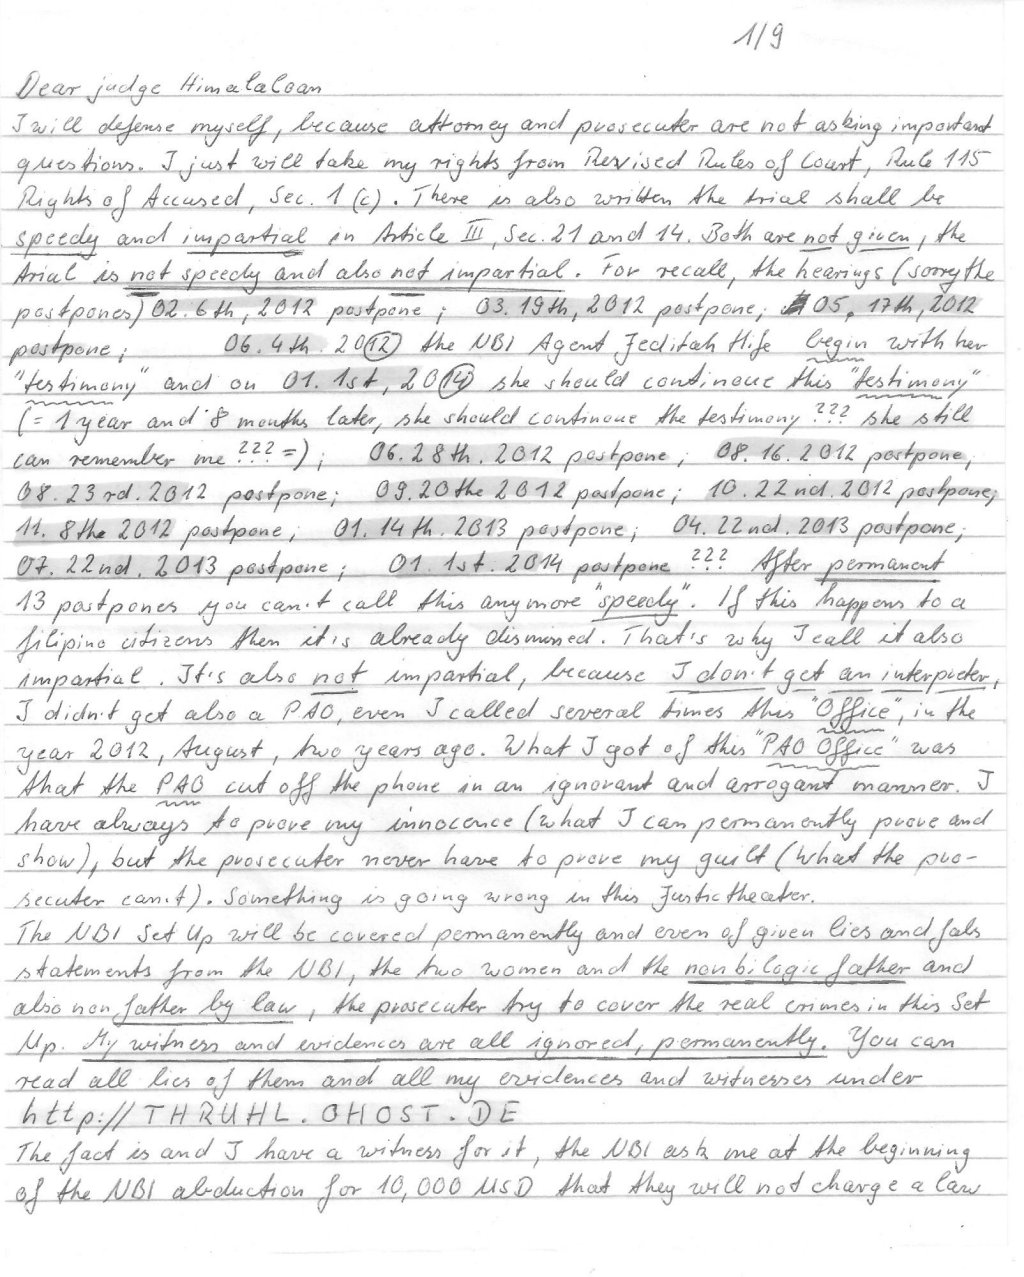 1/9
Dear judge Himalaloan
I will defense myself, because attorney and prosecuter are not asking important
questions. I just will take my rights from Revised Rules of Court, Rule 115
Rights of Accused, Sec. 1 (c). There is also written the trial shall be
speedy and impartial in Article III, Sec. 21 and 14. Both are not given, the
trial is not speedy and also not impartial. For recall, the hearings (sorry the
postpones) 02.6th, 2012 postpone; 03.19th, 2012 postpone; 05. 17th, 2012
postpone; 06. 4th. 2012 the NBI Agent Jeditah Hife begin with her
"testimony" and on 01. 1st, 2014 she should continoue this "testimony"
(= 1 year and 8 months later, she should continoue the testimony ??? she still
can remember me ??? =); 06.28th.2012 postpone; 08.16.2012 postpone,
08.23rd.2012 postpone; 09.20the 2012 postpone; 10.22nd.2012 postpone;
11. 8the 2012 postpone; 01.14th.2013 postpone; 04.22nd.2013 postpone;
07.22nd.2013 postpone; 01.1st.2014 postpone ??? After permanent
13 postpones you can't call this anymore "speedy". If this happens to a
filipino citizens then it's already dismined. That's why I call it also
impartial. It's also not impartial, because I don't get an interpreter,
I didn't get also a PAO, even I called several times this "Office", in the
year 2012, August, two years ago. What I got of this "PAO Office" was
that the PAO cut off the phone in an ignorant and arrogant manner. I
have always to prove my innocence (what I can permanently prove and
show), but the prosecuter never have to prove my guilt (what the pro-
secuter can't). Something is going wrong in this Justictheater.
The NBI Set Up will be covered permanently and even of given lies and fals
statements from the NBI, the two women and the non bilogic father and
also non father by law, the prosecuter try to cover the real crimes in this Set
Up. My witness and evidences are all ignored, permanently. You can
read all lies of them and all my evidences and witnesses under
http://THRUHL.OHOST.DE
The fact is and I have a witness for it, the NBI ask me at the beginning
of the NBI abduction for 10,000 USD that they will not charge a law